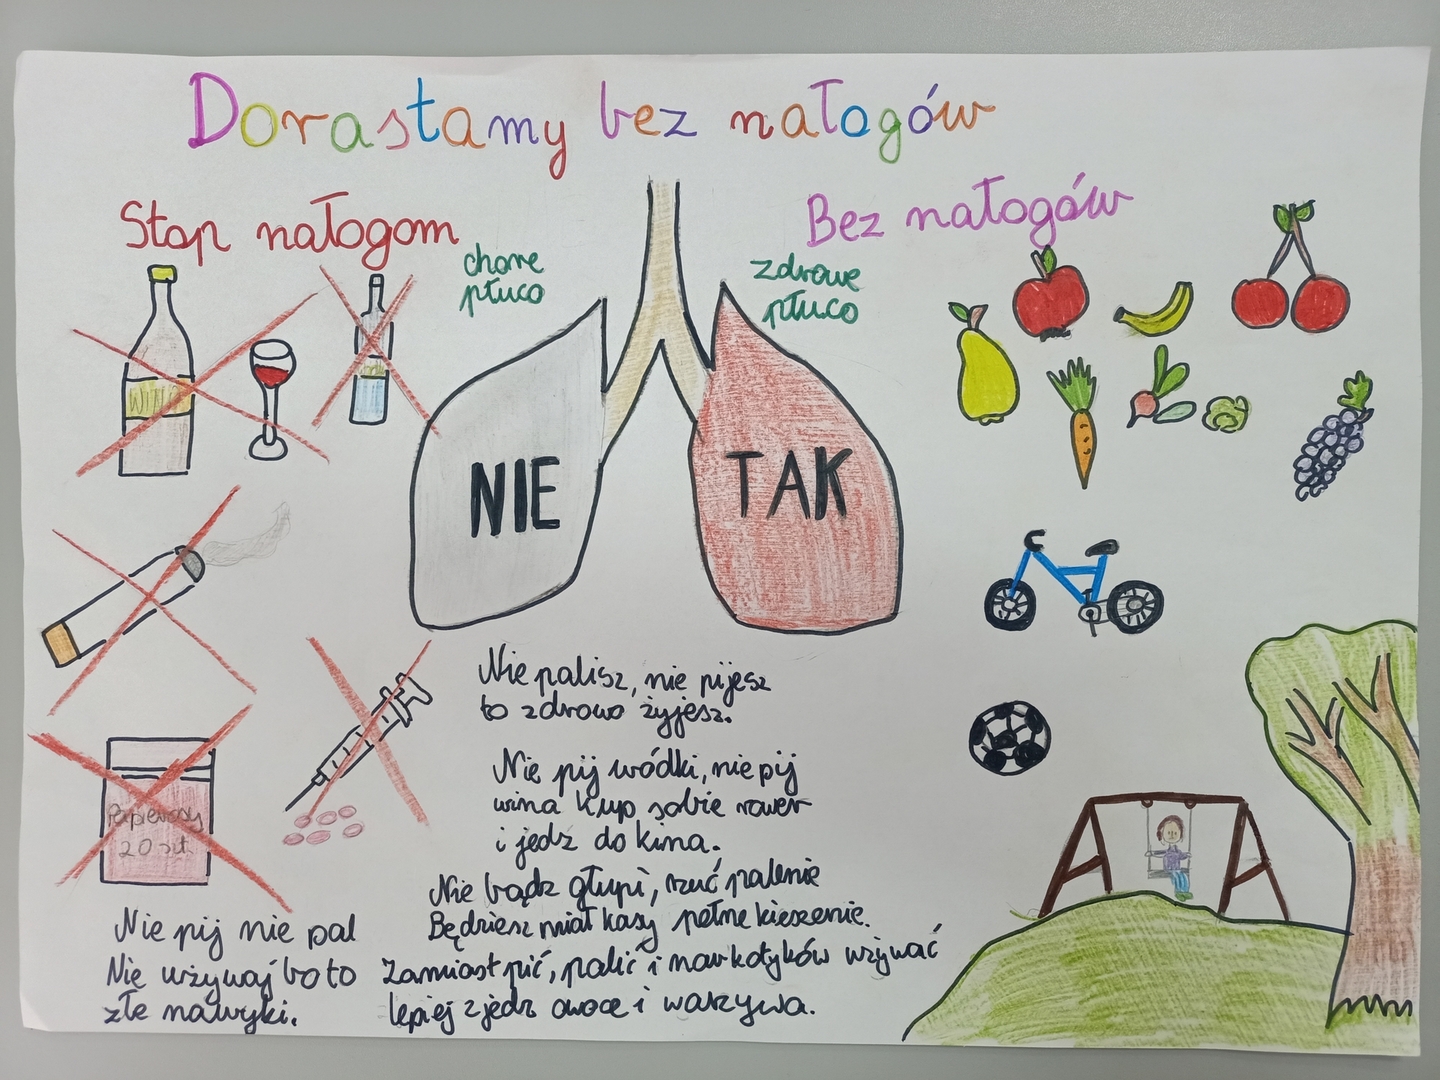 Dorastamy bez nałogów
Stop nałogom
Bez nałogów
chore
płuco
zdrowe
płuco
WINO
NIE
TAK
Papierosy
20 szt.
Nie palisz, nie pijesz
to zdrowo żyjesz.
Nie pij wódki, nie pij
wina kup sobie rower
i jedź do kina.
Nie bądz głupi, rzuć palenie
Będziesz miał kasy pełne kieszenie.
Zamiast pić, palić i narkotyków używać
lepiej zjedz owoce i warzywa.
Nie pij nie pal
Nie używaj bo to
złe nawyki.